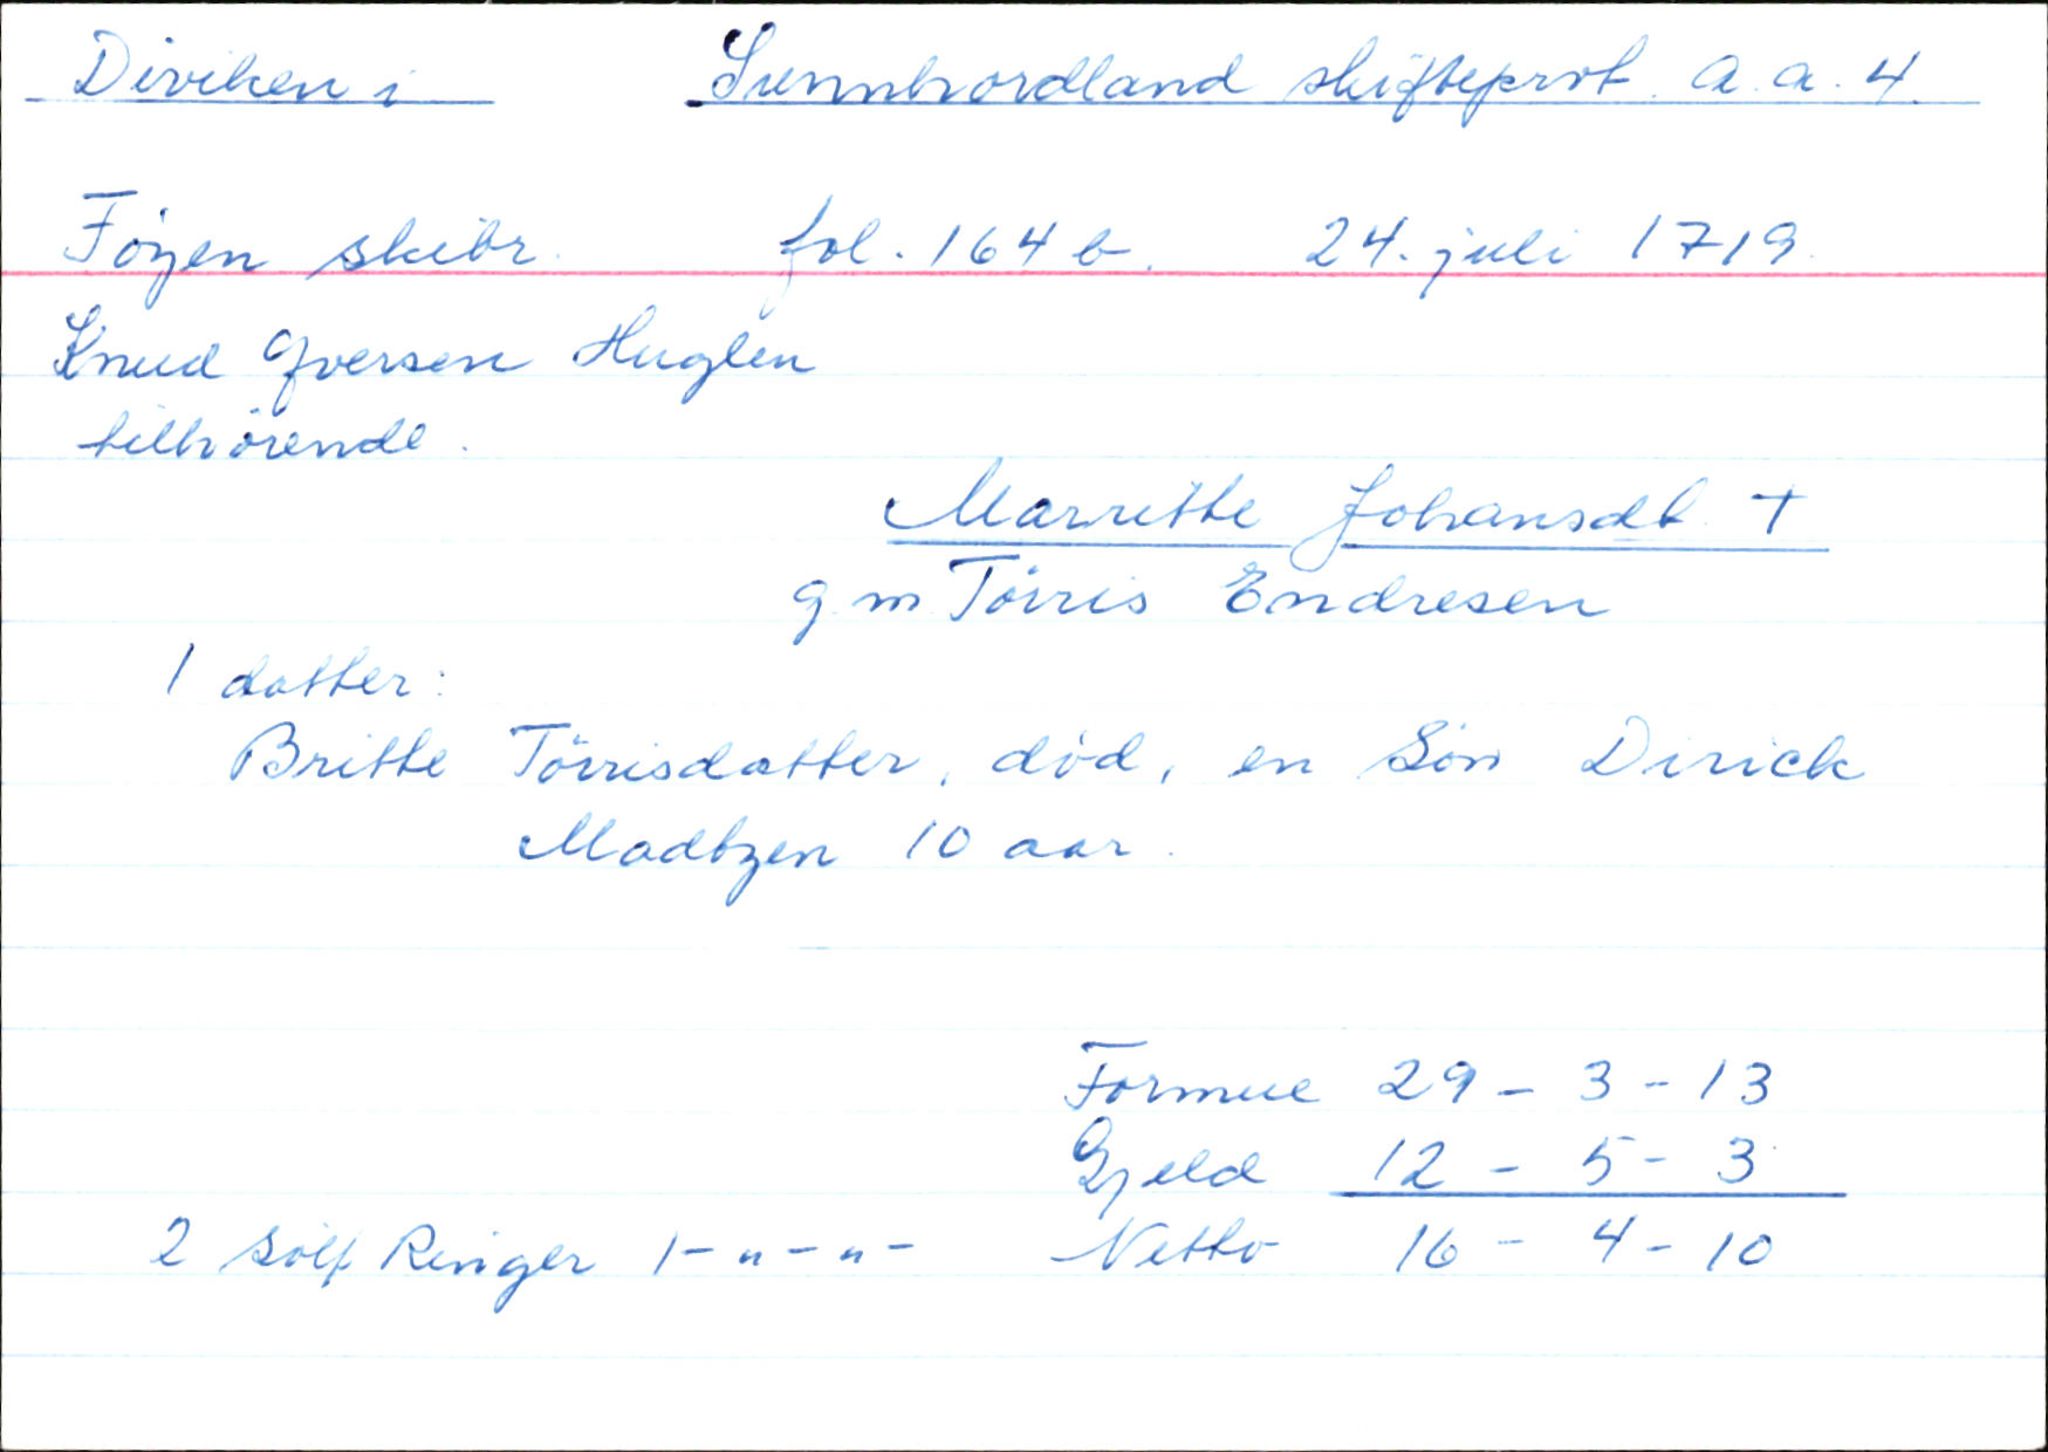 Diviken i Sunnhordland skifteprot. a.a.4.
Föyen skibr. fol. 164 b. 24. juli 1719.
Knud Iversen Huglen
tilhörende.
Marritte Johansdt. +
g m Törris Endresen
1 datter:
Britte Törrisdatter, död, en Sön Dirick
Madtzen 10 aar.
Formue 29 - 3 - 13
Gjeld 12 - 5 - 3
2 Sölf Ringer 1 - " - " - Netto 16 - 4 - 10